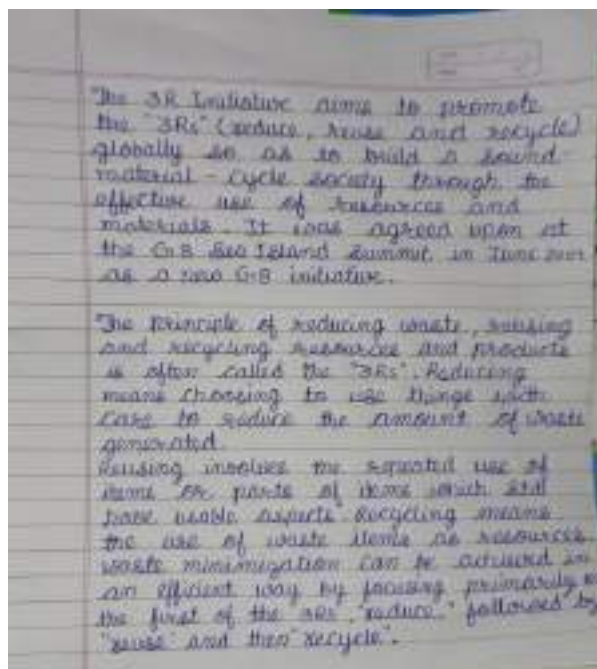 The 3R Initiative aims to promote
the "3Rs" (reduce, reuse and recycle)
globally so as to build a sound-
material-cycle society through the
effective use of resources and
materials. It was agreed upon at
the G-8 Sea Island Summit in June
as a new G-8 initiative.
The principle of reducing waste, reusing
and recycling resources and products
is often called the "3Rs". Reducing
means choosing to use things with
care to reduce the amount of waste
generated.
Reusing involves the repeated use of
items or parts of items which still
have usable aspects. Recycling means
the use of waste items as resources.
waste minimization can be achieved in
an efficient way by focusing primarily on
the first of the 3Rs, "reduce," followed by
"reuse" and then "recycle".